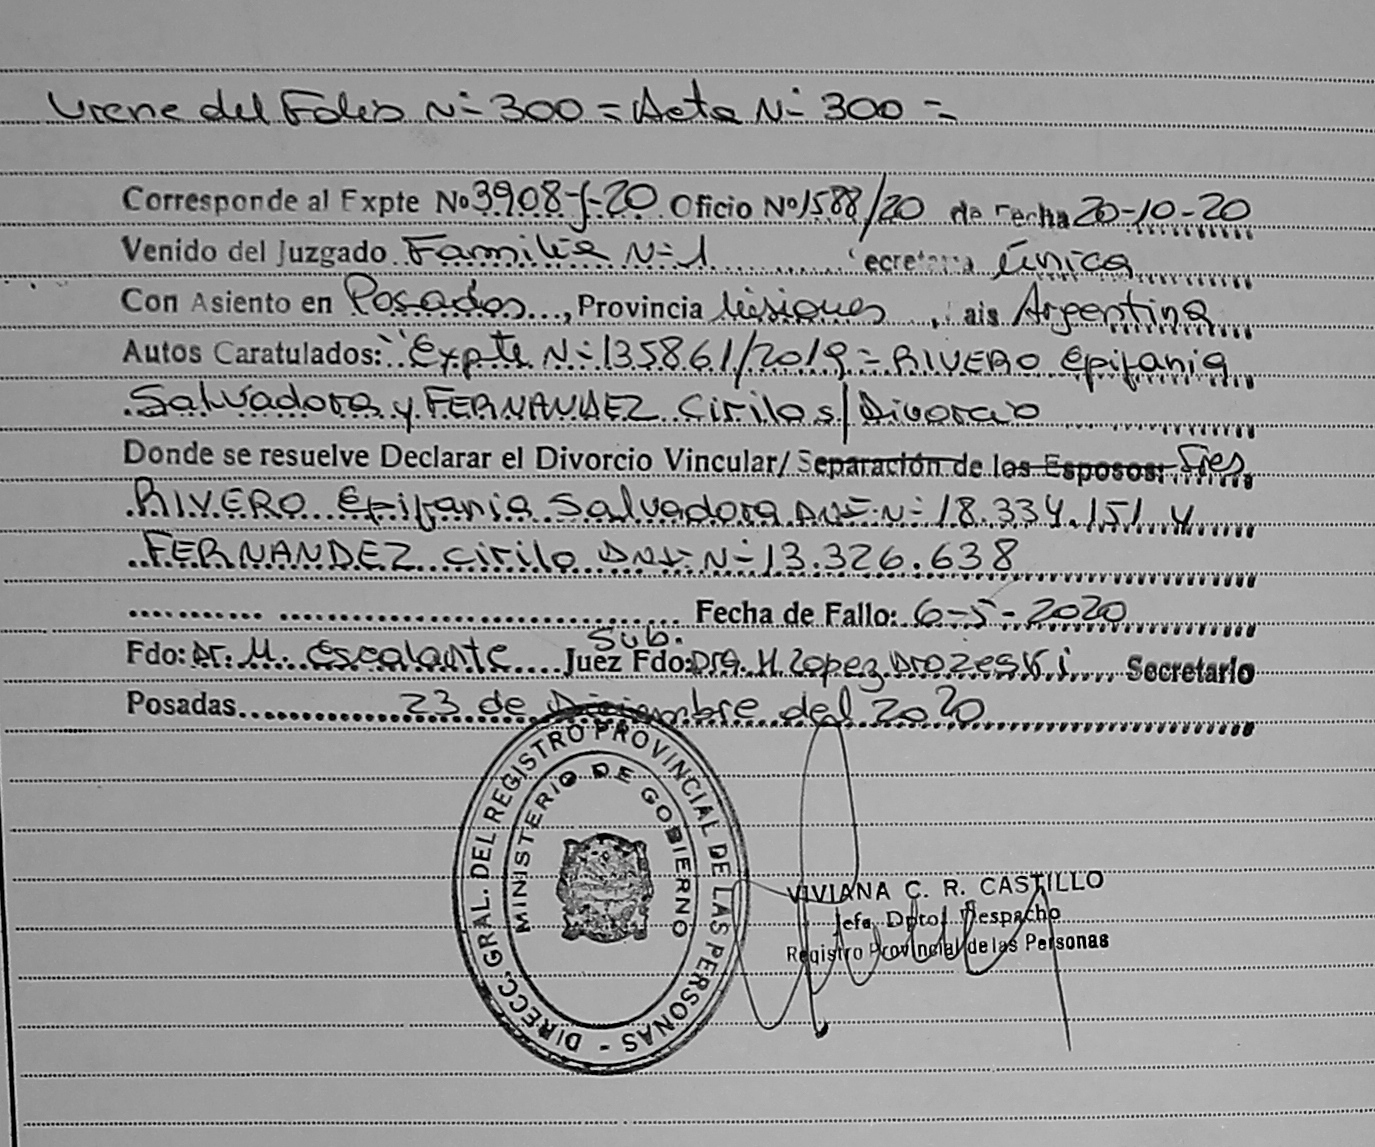 Viene del Folio Nº 300 = Acta Nº 300 =
Corresponde al Expte Nº 3908-J-20 Oficio Nº 1588/20 de Fecha 20-10-20
Venido del Juzgado Familia Nº 1 Secretaria Única
Con Asiento en Posadas, Provincia Misiones, Pais Argentina
Autos Caratulados: "Expte Nº 135861/2019 = RIVERO Epifania
Salvadora y FERNANDEZ Cirilo s/ Divorcio
Donde se resuelve Declarar el Divorcio Vincular/ Separación de los Esposos: Sres
RIVERO Epifania Salvadora DNI Nº 18.334.151 y
FERNANDEZ Cirilo DNI Nº 13.326.638
Fecha de Fallo: 6-5-2020
Sub.
Fdo: Dr. M. Escalante Juez Fdo: Dra. M. Lopez Drozeski Secretario
Posadas 23 de Diciembre del 2020
DIRECC. GRAL. DEL REGISTRO PROVINCIAL DE LAS PERSONAS -
MINISTERIO DE GOBIERNO
VIVIANA C. R. CASTILLO
Jefa Dpto. Despacho
Registro Provincial de las Personas